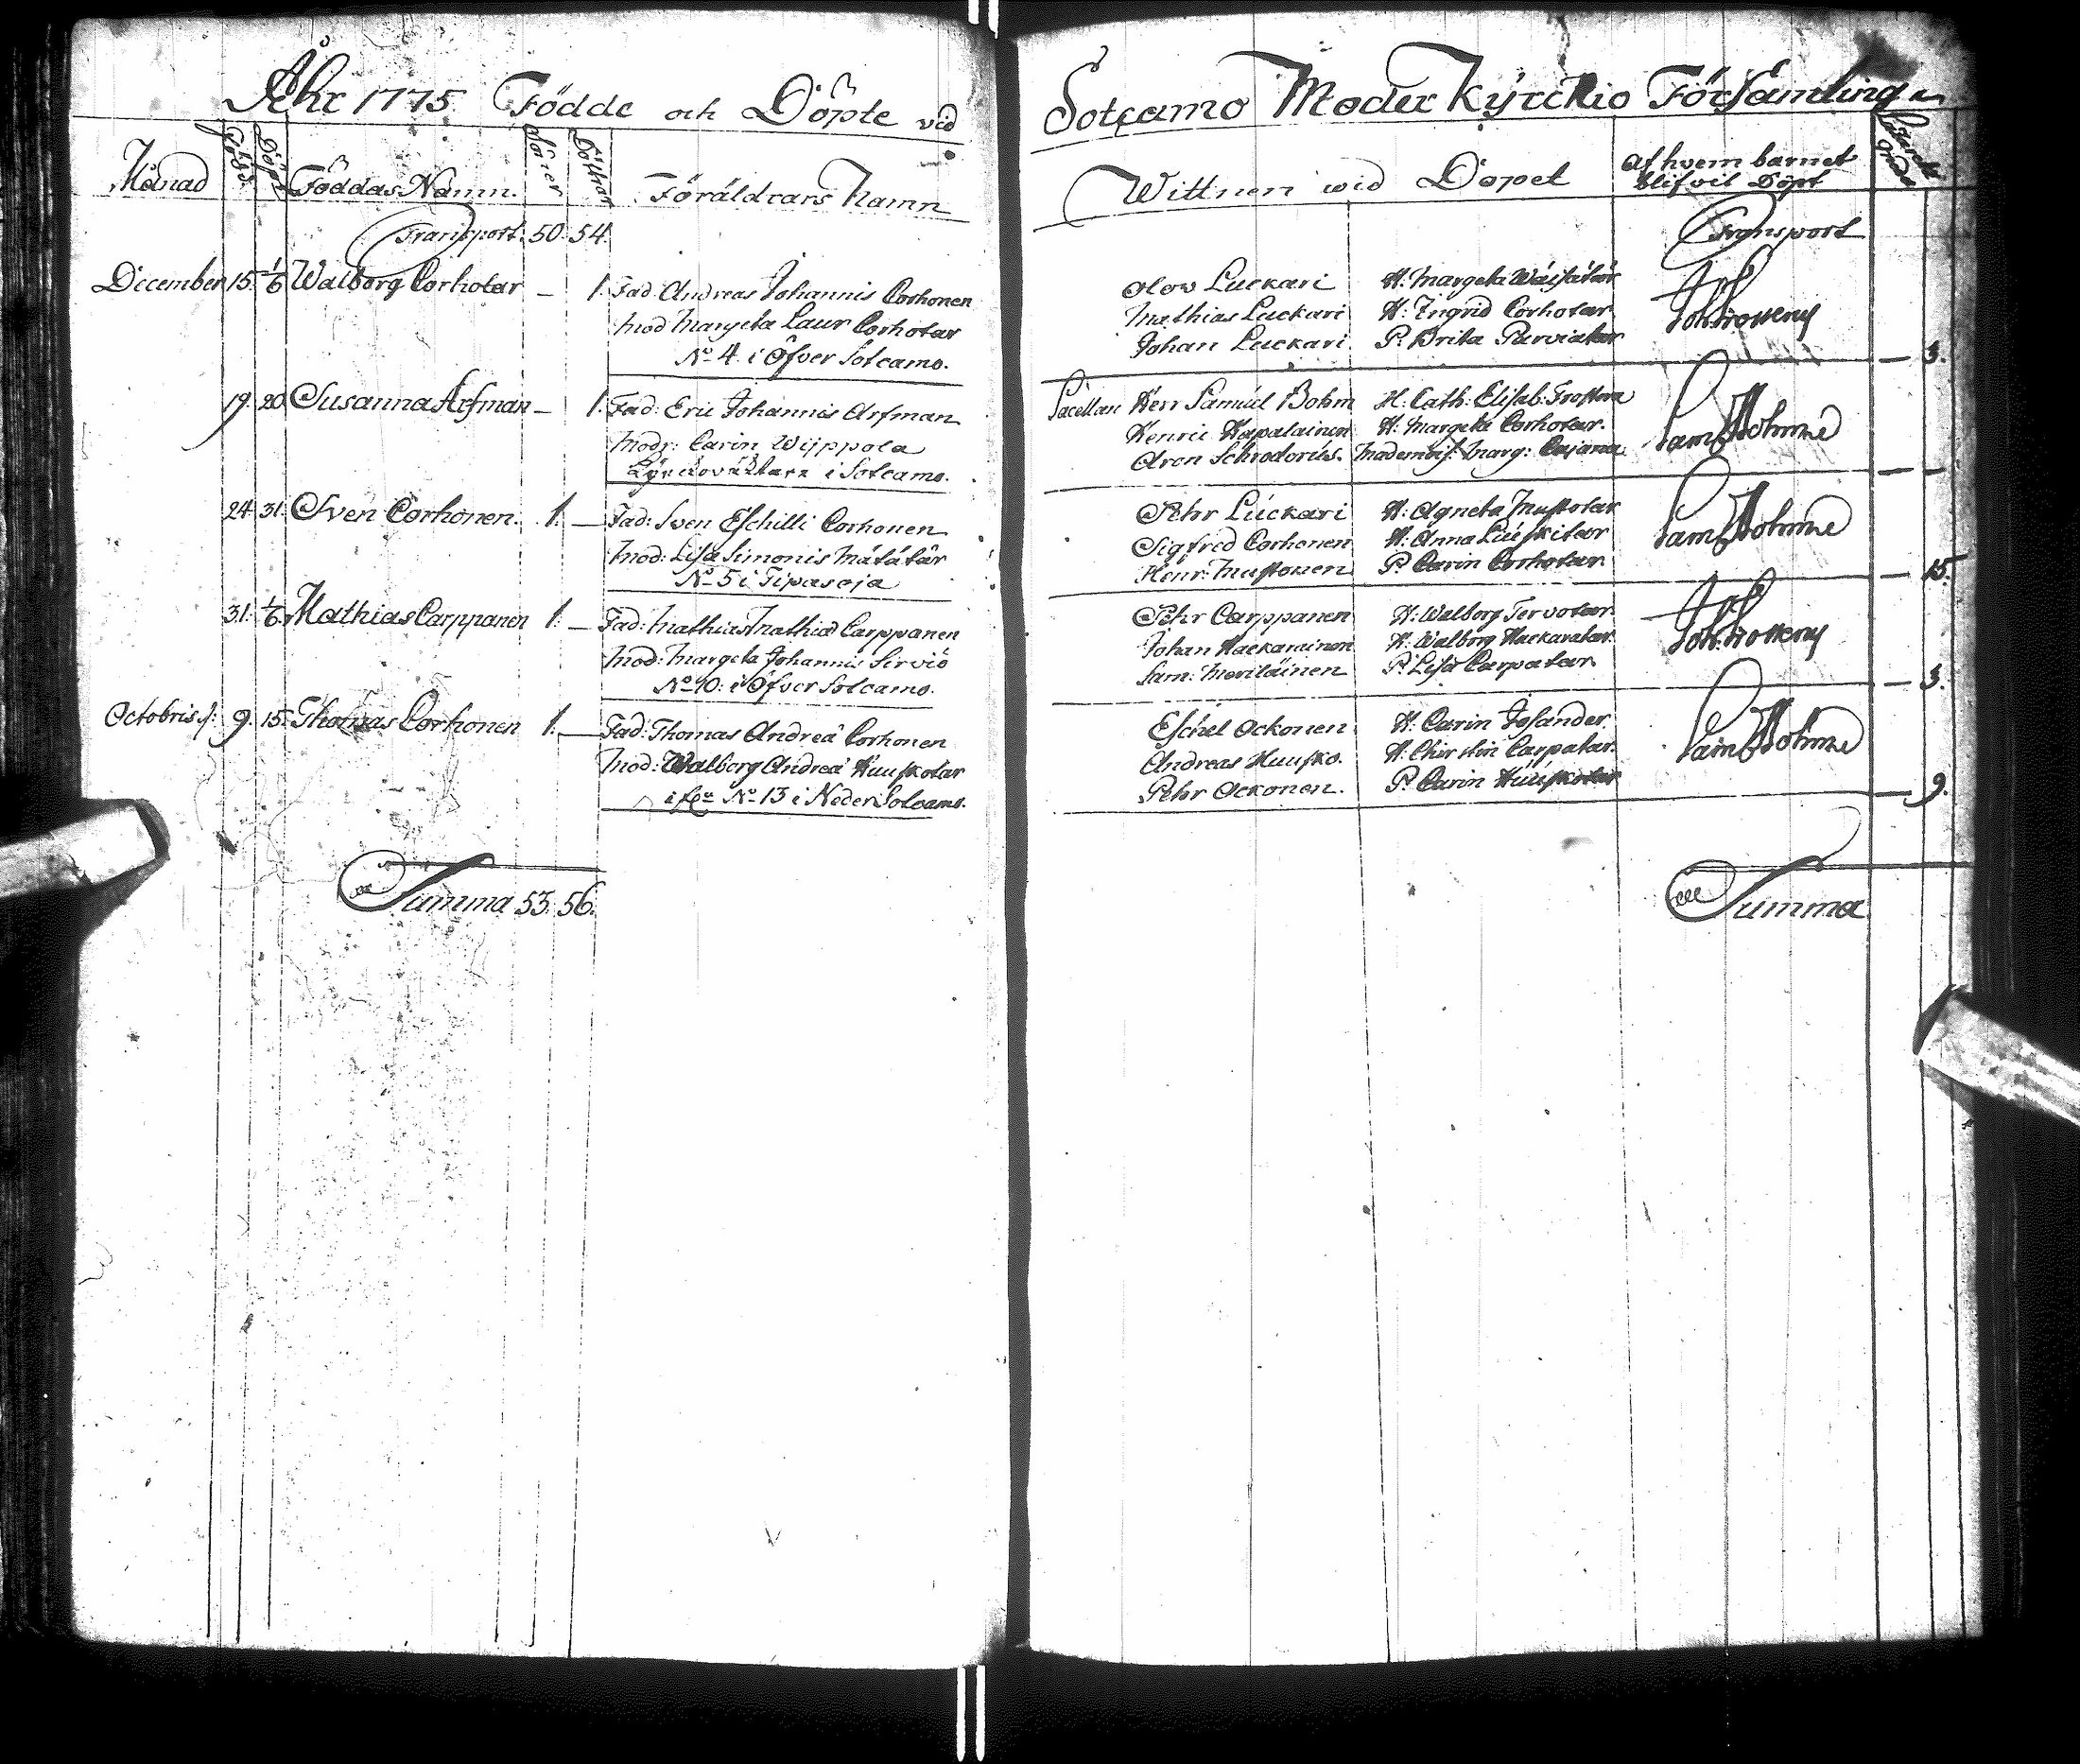 Åhr 1775 Födde och Döpte vid
Månad Född Döpt Föddas Namn. Söner Döttrar Föräldrars Namn
Transport. 50. 54.
December 15. 1/6 Walborg Corhotar — 1. Fad. Andreas Johannis Corhonen
Mod Margeta Laur Corhotar
No 4. i Öfver Sotcamo.
19. 20 Susanna Arfman — 1. Fad: Eric Johannis Arfman
Modr: Carin Wijppola
i Sotcamo.
24. 31. Sven Corhonen. 1. — Fad: Sven Eschilli Corhonen
Mod: Lisa Simonis Mätätär
No 5 i Tipasoja
31. 1/6. Mathias Carppanen 1. — Fad: Mathias Mathiæ Carppanen
Mod: Margeta Johannis Serviö
No 10: i Öfver Sotcamo.
Octobris 9. 15. Thomas Corhonen 1. — Fad: Thomas Andreæ Corhonen
Mod: Walborg Andreæ Huuskotar
No 13 i Neder Sotcamo.
Summa 53. 56.
Sotcamo Moder Kyrckio Församling
Wittnen wid Döpet
Af hvem barnet
blifvit Döpt
Transport
Olov Luckari H: Margeta Wäisätär
Mathias Luckari H: Ingrid Corhotar
Johan Luckari P. Brita Parviatar — 3.
Sacellan Herr Samuel Bohm H: Cath: Elisab: Frostera
Henric Hapalainen H: Margeta Corhotar. Sam Bohme
Aron Schroderus. Mademois: Marg: Cajana — —
Pehr Luckari H: Agneta Mustotar
Sigfred Corhonen H: Anna Luuskitar Sam Bohme
Henr: Mustonen P. Carin Corhotar — 15.
Pehr Carppanen H: Walborg Tervotar
Johan Hackarainen H: Walborg Hackaratar
Sam: Moriläinen P. Lisa Carpatar — 3.
Eschel Ockonen H: Carin Josander
Andreas Huusko. H: Chirstin Carpatar. Sam Bohme
Pehr Ockonen. P. Carin Huuskotar — 9.
Summa